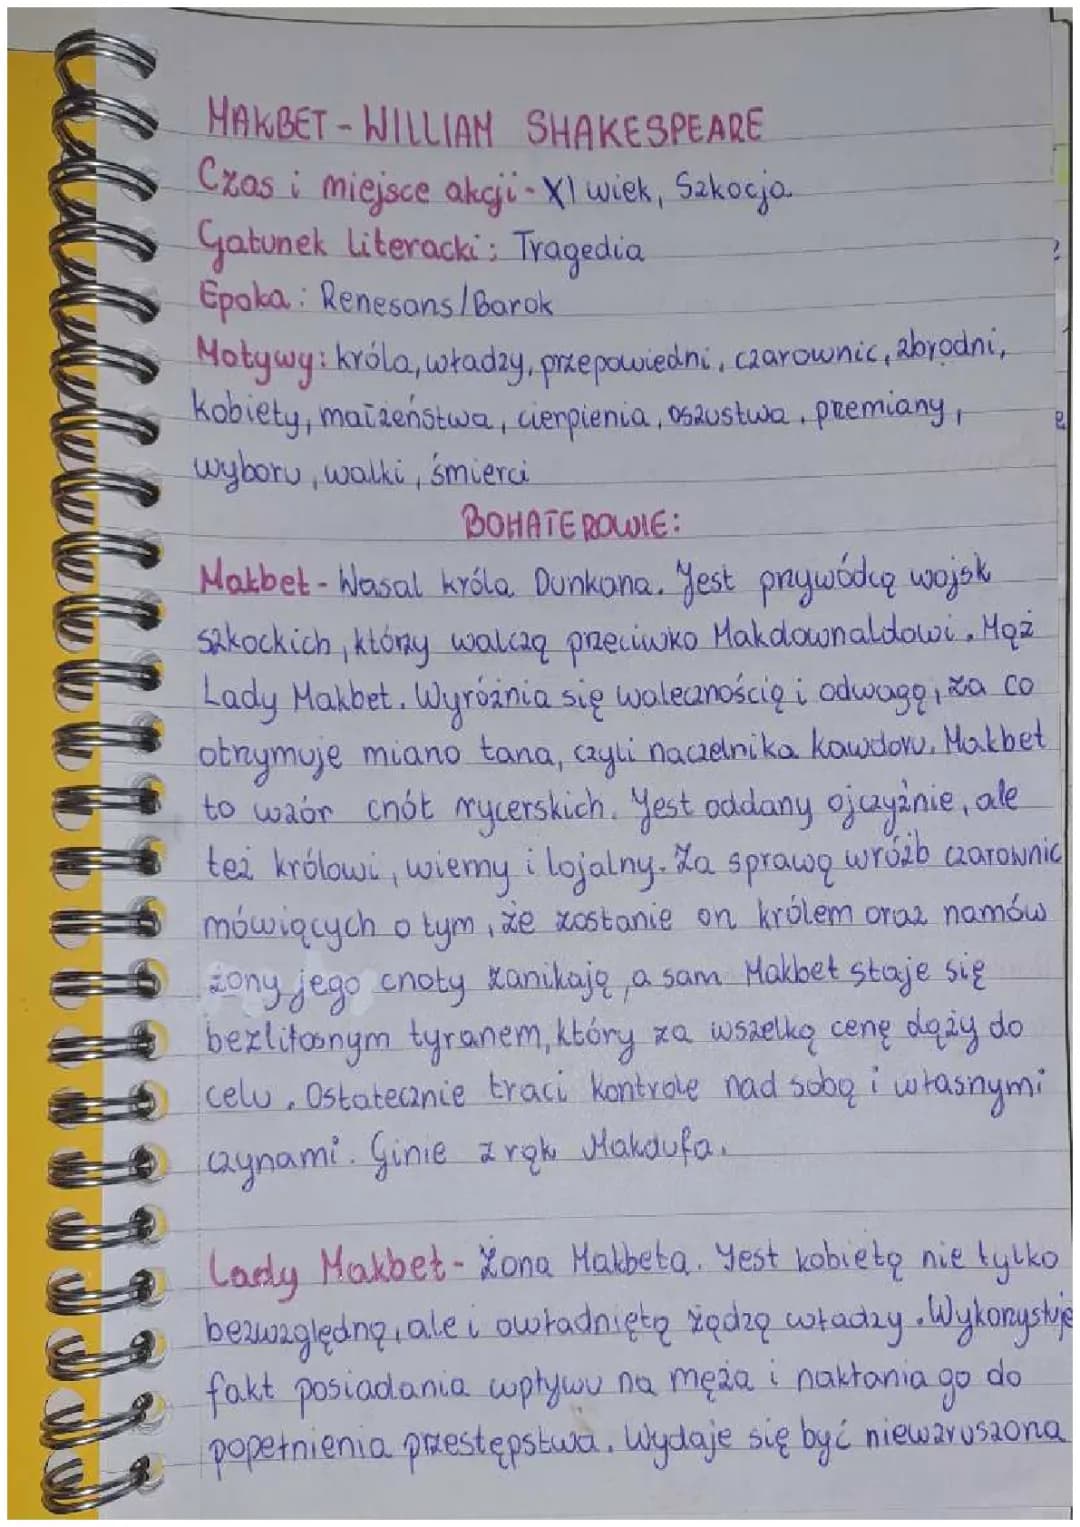 MAKBET - WILLIAM SHAKESPEARE
Czas i miejsce akcji - XI wiek, Szkocja
Gatunek literacki: Tragedia
Epoka: Renesans/Barok
Motywy: króla, władzy, przepowiedni, czarownic, zbrodni,
kobiety, małżeństwa, cierpienia, oszustwa, przemiany,
wyboru, walki, śmierci
BOHATEROWIE:
Makbet - Wasal króla Dunkana. Jest przywódcą wojsk
szkockich, który walczą przeciwko Makdownaldowi. Mąż
Lady Makbet. Wyróżnia się walecznością i odwagą, za co
otrzymuje miano tana, czyli naczelnika Kawdoru. Makbet
to wzór cnót rycerskich. Jest oddany ojczyźnie, ale
też królowi, wierny i lojalny. Za sprawą wróżb czarownic
mówiących o tym, że zostanie on królem oraz namów
żony jego cnoty zanikają, a sam Makbet staje się
bezlitosnym tyranem, który za wszelką cenę dąży do
celu. Ostatecznie traci kontrole nad sobą i własnymi
czynami. Ginie z rąk Makdufa.
Lady Makbet - Żona Makbeta. Jest kobietą nie tylko
bezwzględną, ale i owładniętą żądzą władzy. Wykorzystuje
fakt posiadania wpływu na męża i nakłania go do
popełnienia przestępstwa. Wydaje się być niewzruszona